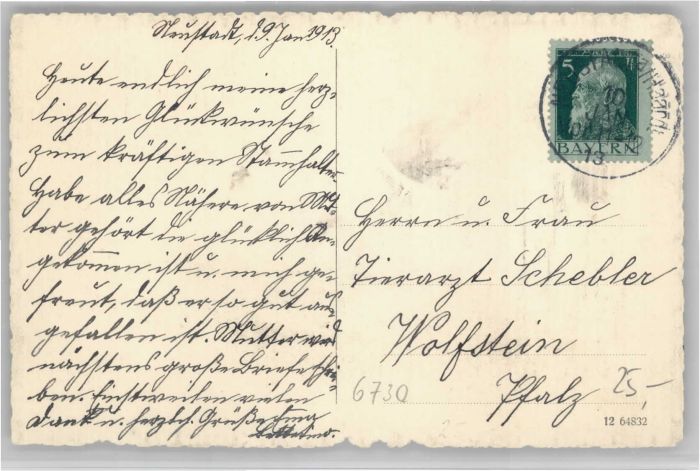 Neustadt, d. 9. Jan 1913.
Heute endlich meine herz-
lichsten Glückwünsche
zum kräftigen Stammhalter.
Habe alles Nähere von Mut-
ter gehört die glücklich an-
gekommen ist u. mich ge-
freut, daß er so gut aus-
gefallen ist. Mutter wird
nächstens große Briefe schrei-
ben. Einstweilen vielen
Dank u. herzlch. Grüße
5 Pf
BAYERN
10
JAN
13
Herrn u. Frau
Tierarzt Schebler
Wolfstein
Pfalz
6730
25,-
12 64832